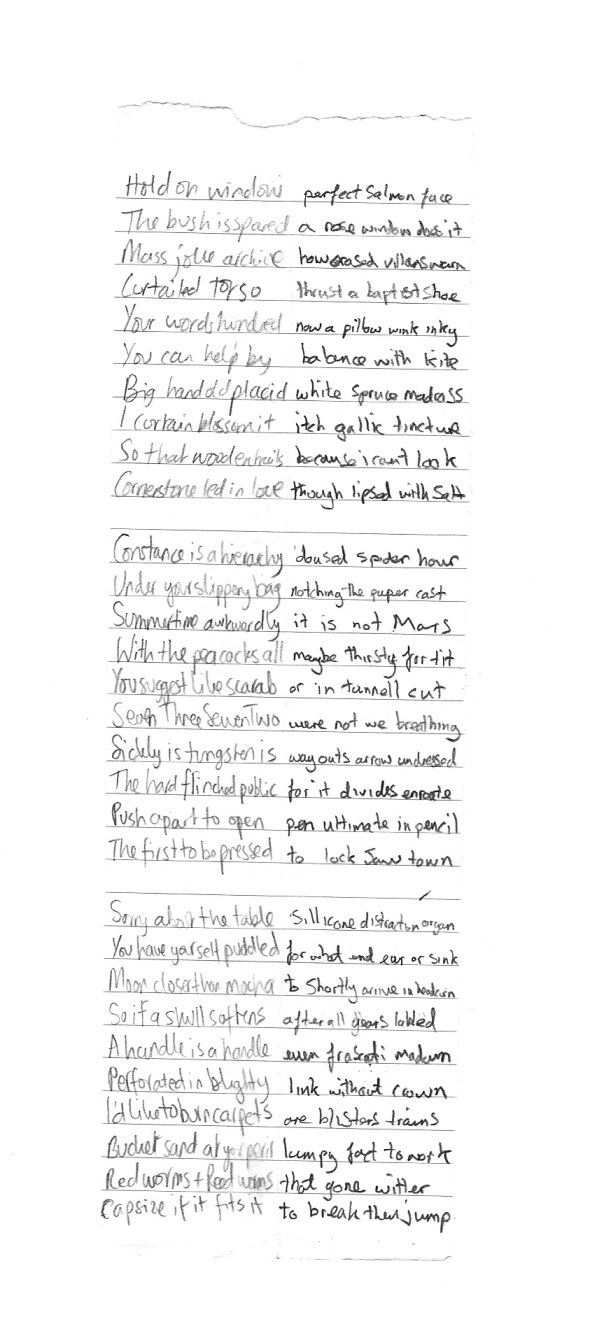 Hold on window perfect salmon face
The bush is spared a rose window does it
Mass jolie archive how erased villans warn
Curtailed torso thrust a baptist shoe
Your words hundred now a pillow wink inky
You can help by balance with kite
Big hand odd placid white spruce madness
I curtain blossom it itch gallic tincture
So that wooden hails because i cant look
Cornerstone led in love though lipsed with salt
Constance is a hierarchy doused spider hour
Under your slippery bag notching the paper cast
Summertime awkwardly it is not Mars
With the peacocks all maybe thirsty for tit
You suggest like scarab or in tunnell cut
Seven Three Seven Two were not we breathing
Sickly is tungsten is way outs arrow undressed
The hard flinched public for it divides enroute
Push apart to open pen ultimate in pencil
The first to be pressed to lock Jaw town
Sorry about the table sillicone distraction organ
You have yourself puddled for what end ear or sink
Moon closer than mocha to shortly arrive in
So if a skull softens after all gears labled
A handle is a handle even frascati madam
Perforated in blighty link without crown
I'd like to burn carpets are blisters trains
Bucket sand at your peril lumpy fact to work
Red worms + Reed worms that gone wither
Capsize if it fits it to break then jump